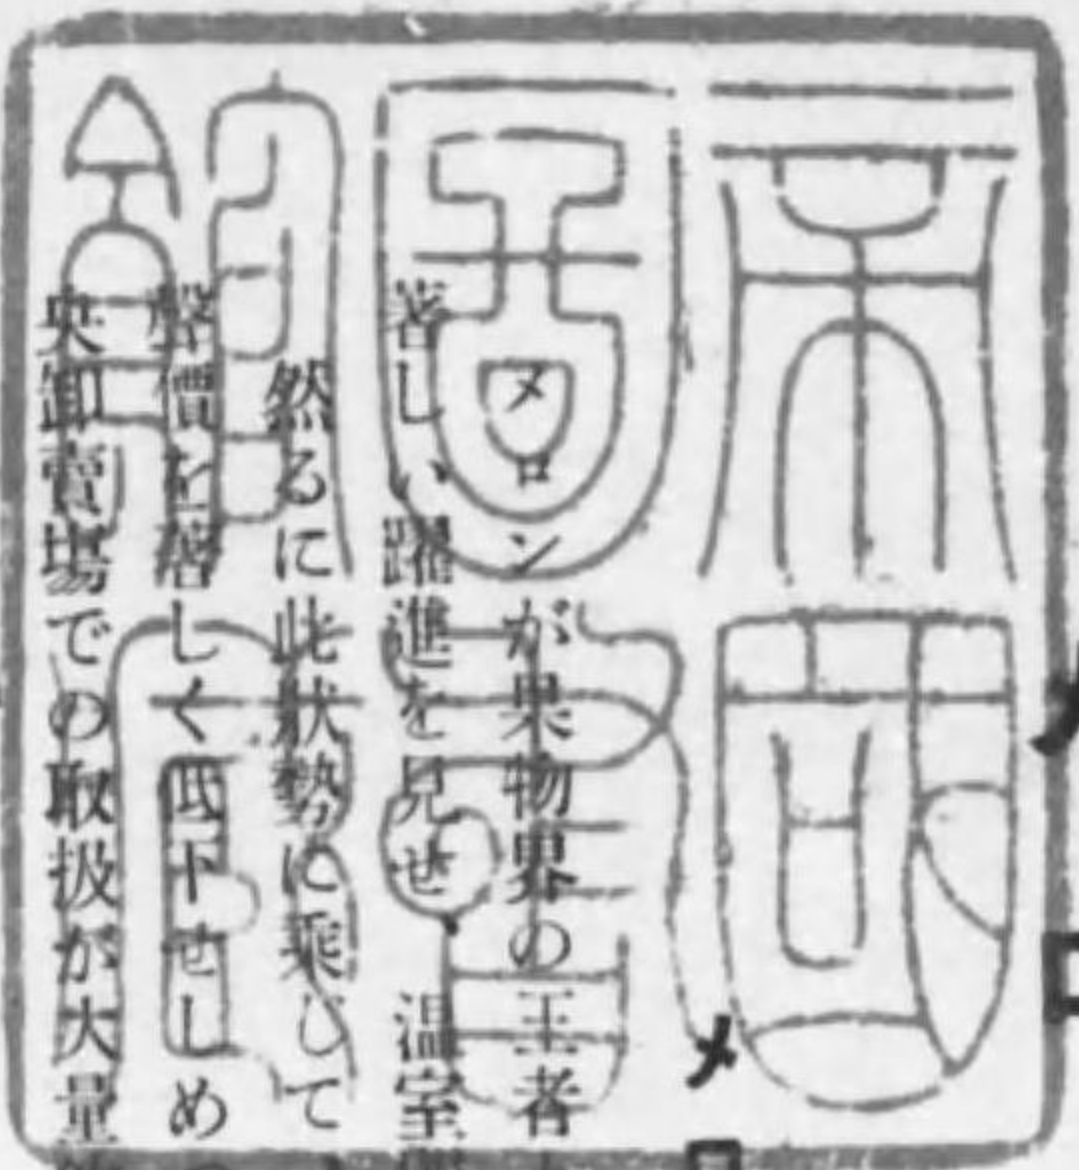 帝國
圖書
館藏
メロンが果物界の王者
著しい躍進を見せ 温室
然るに此狀勢に乘じて
聲價を著しく低下せしめ
央卸賣場での取扱が大量
メ